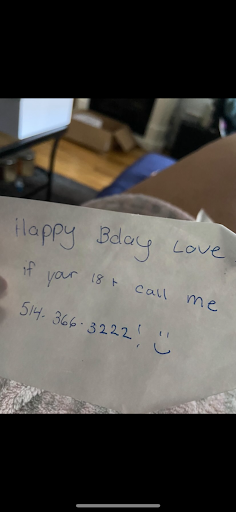 Happy Bday Love
if your 18+ call me
514-366-3222! :)